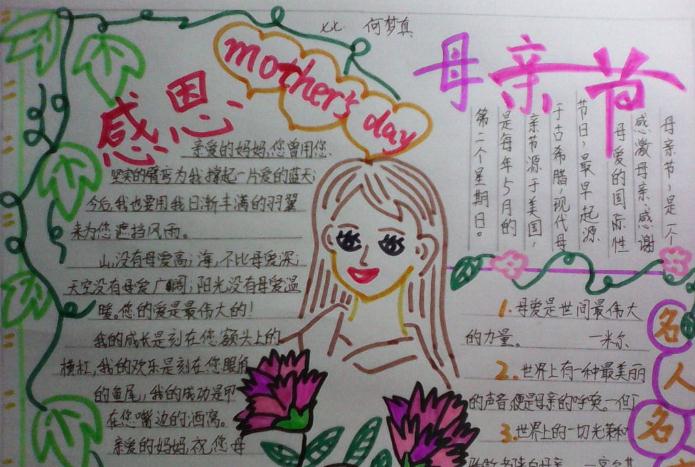 七七 何梦真
mother's day
感恩
亲爱的妈妈,您曾用您
坚实的臂弯为我撑起一片爱的蓝天;
今后,我也要用我日渐丰满的羽翼
来为您遮挡风雨。
山,没有母爱高;海,不比母爱深;
天空没有母爱广阔;阳光没有母爱温
暖。您的爱是最伟大的!
我的成长是刻在您额头上的
横杠,我的欢乐是刻在您眼角
的鱼尾,我的成功是甲
在您嘴边的酒窝。
亲爱的妈妈,祝您母
母亲节
母亲节,是一个
感激母亲、感谢
母爱的国际性
节日,最早起源
于古希腊,现代母
亲节源于美国,
是每年5月的
第二个星期日。
1.母爱是世间最伟大
的力量。 —米尔
2.世界上有一种最美丽
的声音,便是母亲的呼唤。—但丁
3.世界上的一切光荣和
名
人
名